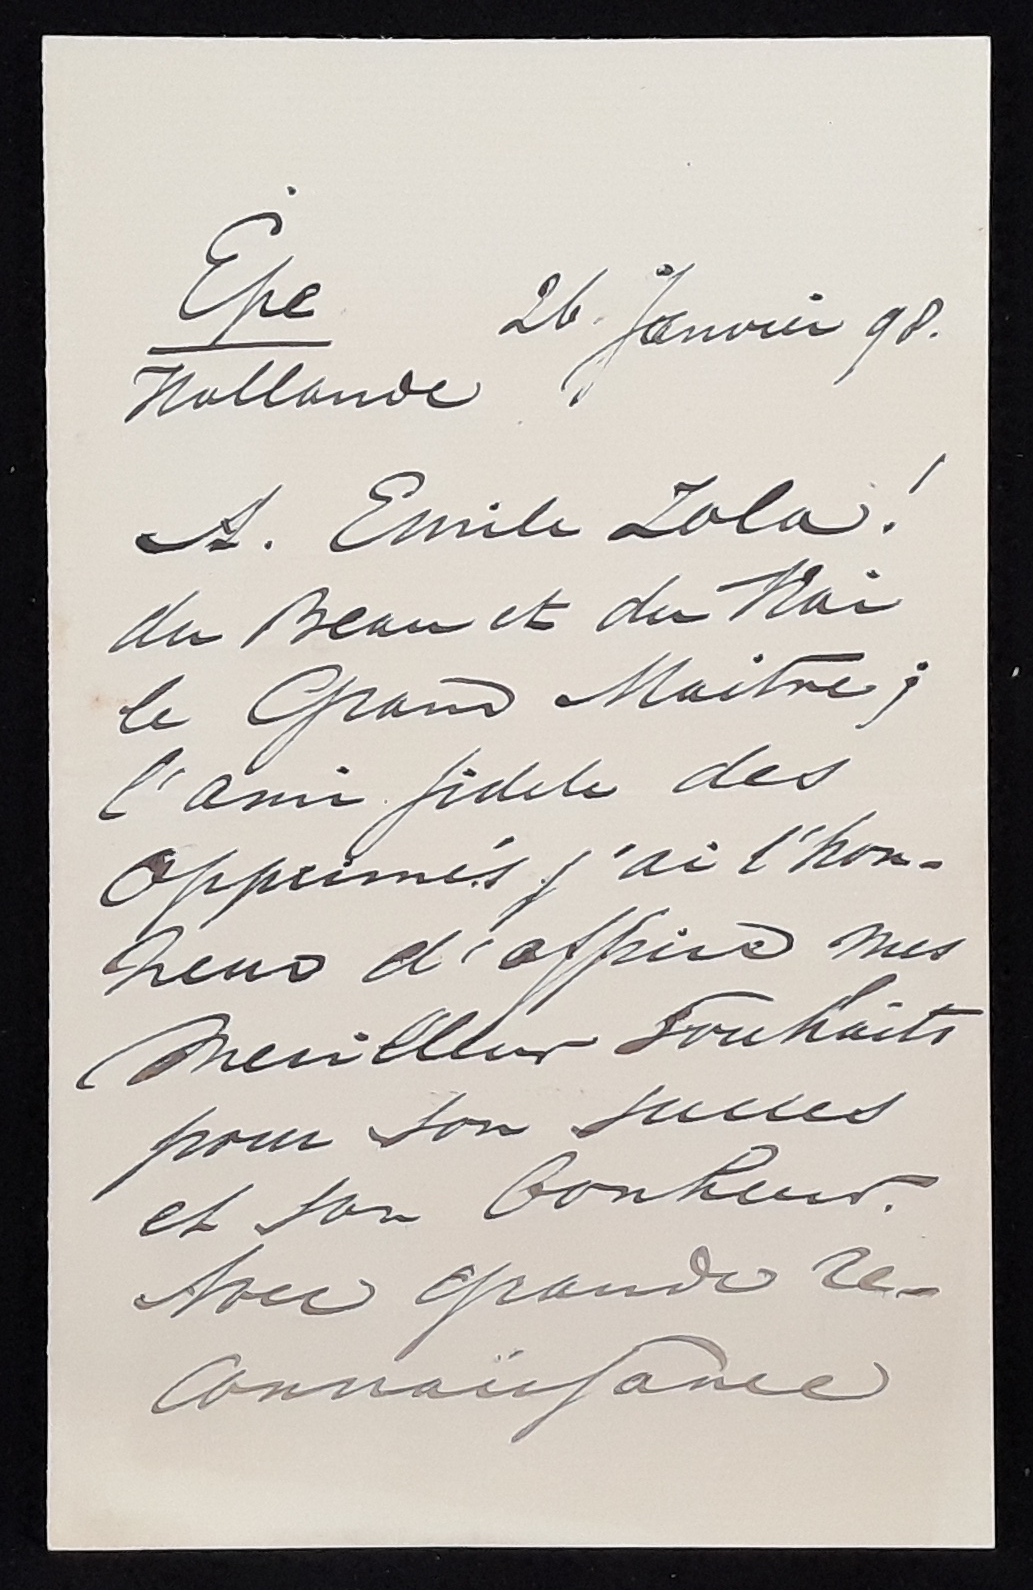 Épe 26 Janvier 98.
Hollande
A. Emile Zola!
du Beau et du Vrai
le Grand Maitre;
l'ami fidele des
Opprimés, j'ai l'hon-
heur d'offrire mes
meuilleur souhaits
pour son succes
et son bonheur.
Avec grande re-
connaissance